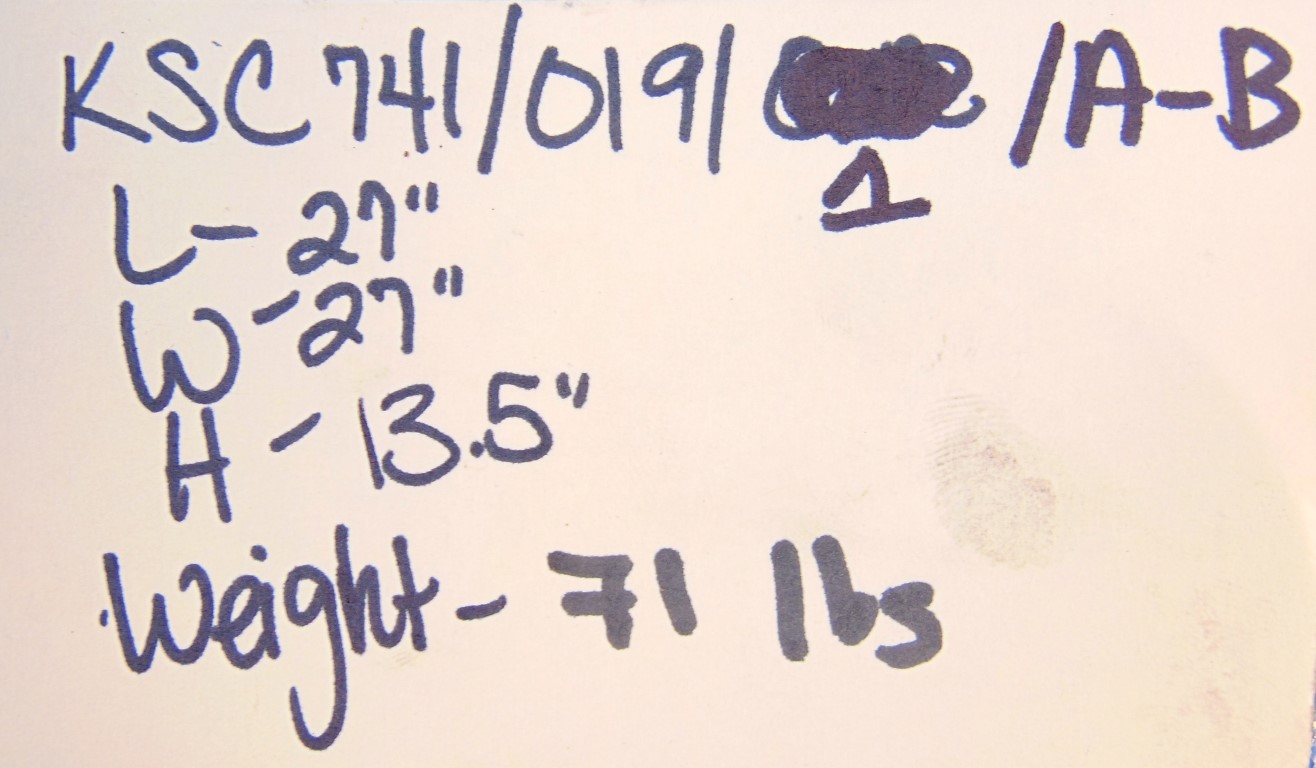 KSC 741/019/1/A-B
L- 27"
W-27"
H - 13.5"
Weight - 71 lbs